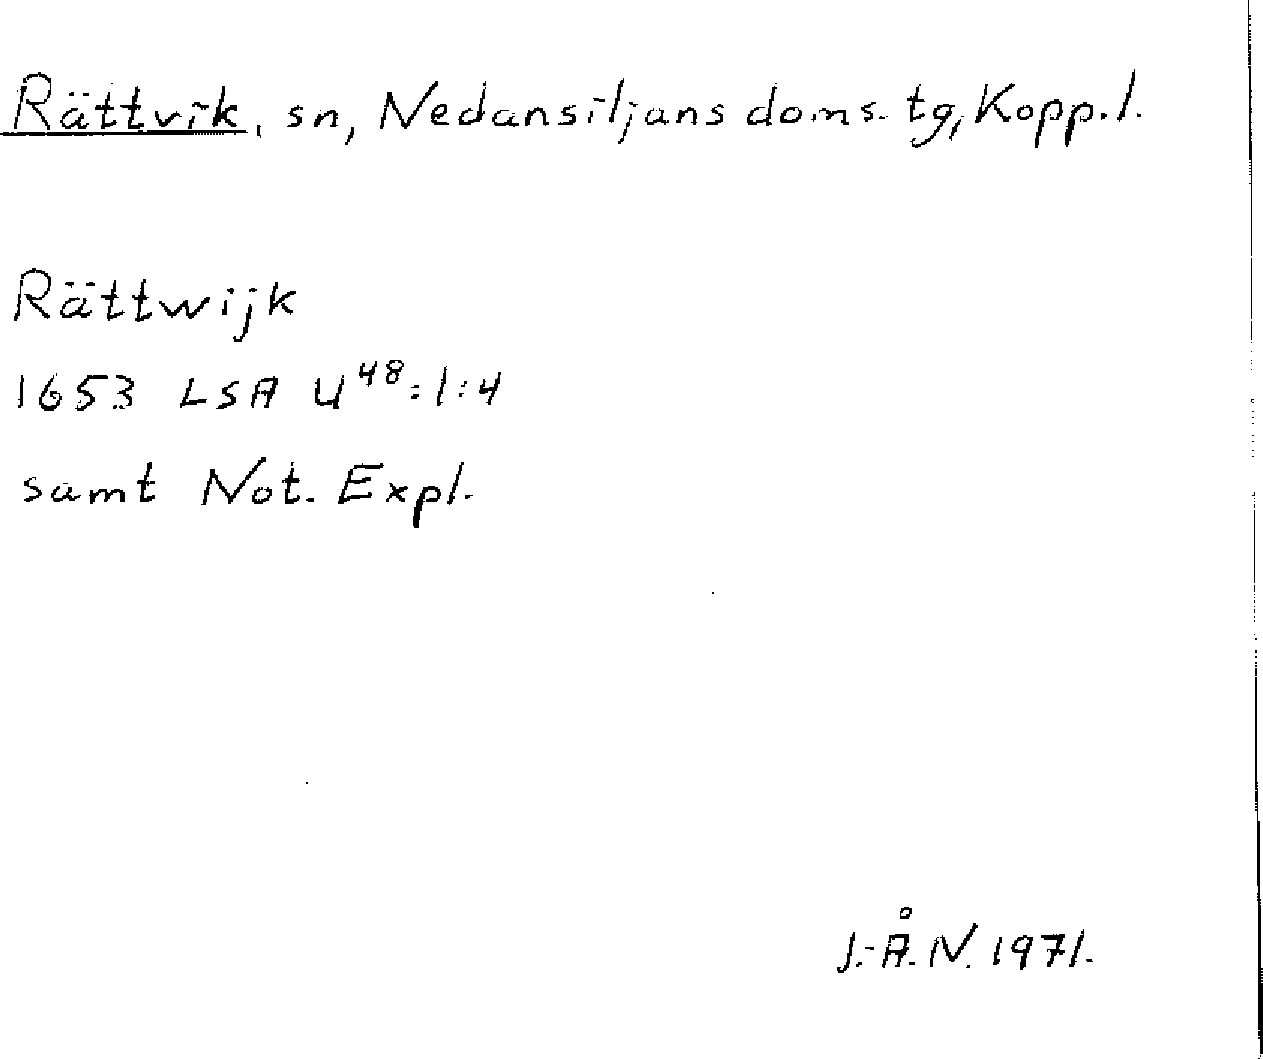 Rättvik, sn, Nedansiljans doms. tg, Kopp. l.
Rättwijk
1653 LSA U⁴⁸:1:4
samt Not. Expl.
J.-Å. N. 1971.